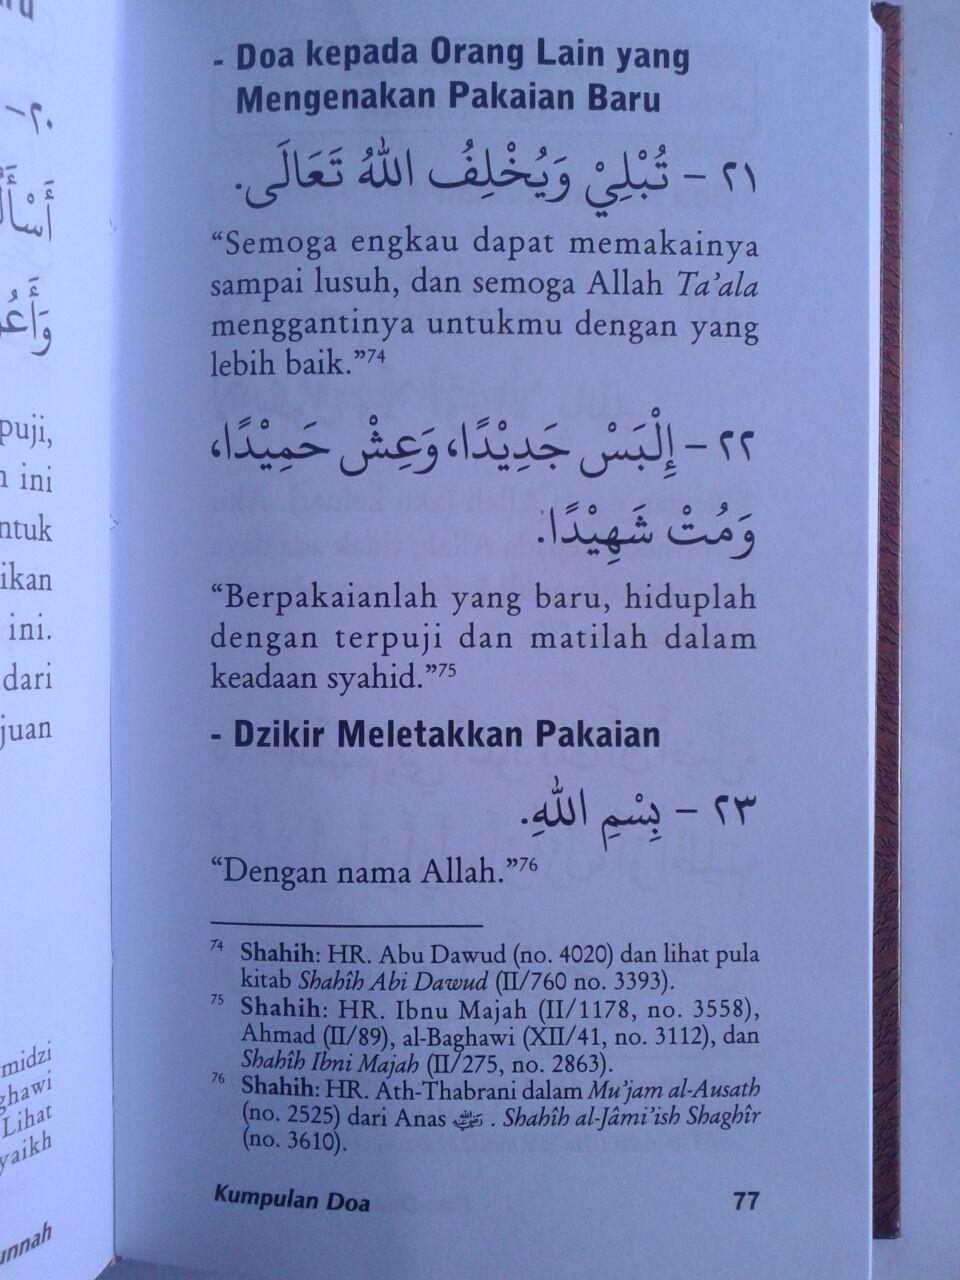 - Doa kepada Orang Lain yang
Mengenakan Pakaian Baru
٢١ – تُبْلِيْ وَيُخْلِفُ اللهُ تَعَالَى.
“Semoga engkau dapat memakainya
sampai lusuh, dan semoga Allah Ta’ala
menggantinya untukmu dengan yang
lebih baik.”74
٢٢ – إِلْبَسْ جَدِيْدًا، وَعِشْ حَمِيْدًا،
وَمُتْ شَهِيْدًا.
“Berpakaianlah yang baru, hiduplah
dengan terpuji dan matilah dalam
keadaan syahid.”75
- Dzikir Meletakkan Pakaian
٢٣ – بِسْمِ اللهِ.
“Dengan nama Allah.”76
74 Shahih: HR. Abu Dawud (no. 4020) dan lihat pula
kitab Shahîh Abi Dawud (II/760 no. 3393).
75 Shahih: HR. Ibnu Majah (II/1178, no. 3558),
Ahmad (II/89), al-Baghawi (XII/41, no. 3112), dan
Shahîh Ibni Majah (II/275, no. 2863).
76 Shahih: HR. Ath-Thabrani dalam Mu’jam al-Ausath
(no. 2525) dari Anas . Shahîh al-Jâmi’ish Shaghîr
(no. 3610).
Kumpulan Doa 77
٢٠ –
puji,
ini
ntuk
ikan
ini.
dari
juan
midzi
ghawi
Lihat
yaikh
unnah